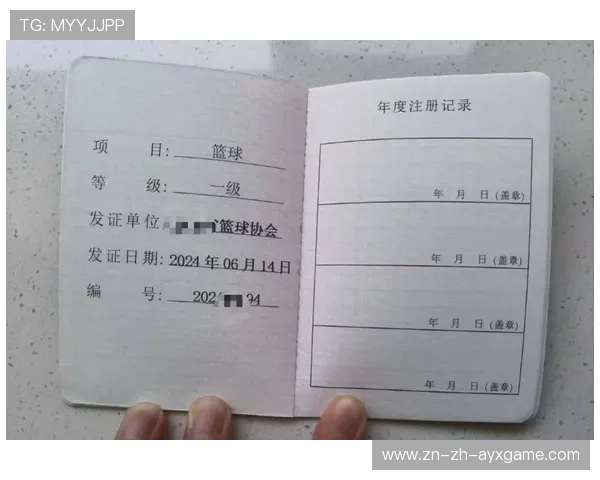 TG: MYYJJPP
项 目: 篮球
等 级: 一级
发证单位 篮球协会
发证日期: 2024 年 06 月 14 日
编 号: 202 94
年度注册记录
年 月 日(盖章)
年 月 日(盖章)
年 月 日(盖章)
年 月 日(盖章)
www.zn-zh-ayxgame.com